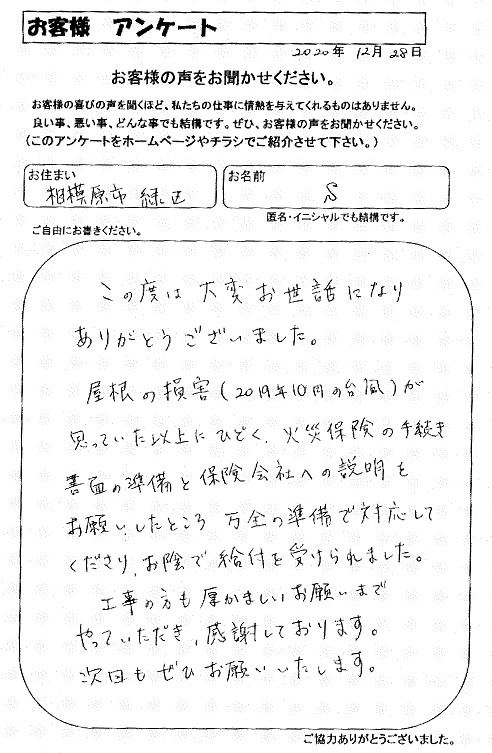 お客様 アンケート
2020年 12月 28日
お客様の声をお聞かせください。
お客様の喜びの声を聞くほど、私たちの仕事に情熱を与えてくれるものはありません。
良い事、悪い事、どんな事でも結構です。ぜひ、お客様の声をお聞かせください。
(このアンケートをホームページやチラシでご紹介させて下さい。)
お住まい
相模原市 緑区
お名前
S
匿名・イニシャルでも結構です。
ご自由にお書きください。
この度は大変お世話になり
ありがとうございました。
屋根の損害(2019年10月の台風)が
思っていた以上にひどく、火災保険の手続き
書面の準備と保険会社への説明を
お願いしたところ 万全の準備で対応して
くださり、お陰で給付を受けられました。
工事の方も厚かましいお願いまで
やっていただき、感謝しております。
次回もぜひお願いいたします。
ご協力ありがとうございました。